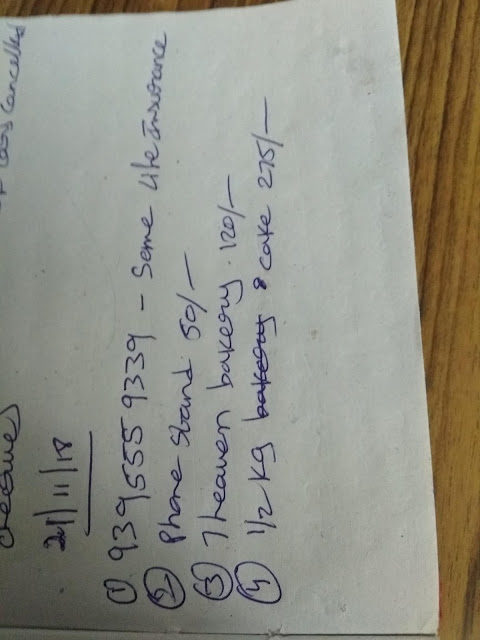 cancelled
24/11/18
1) 939555 9339 - Some Life Insurance
2 Phone Stand 50/-
3 7 heaven bakery . 120/-
4 1/2 Kg bakery & cake 275/-